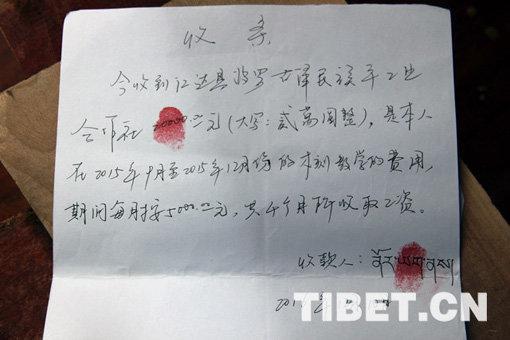 收 条
今收到江达县波罗古泽民族手工业
合作社20000.00元(大写:贰萬圆整),是本人
在2015年9月至2015年12月份的木刻教学的费用,
期间每月按5000.00元,共4个月所收取工资。
收款人:
TIBET.CN